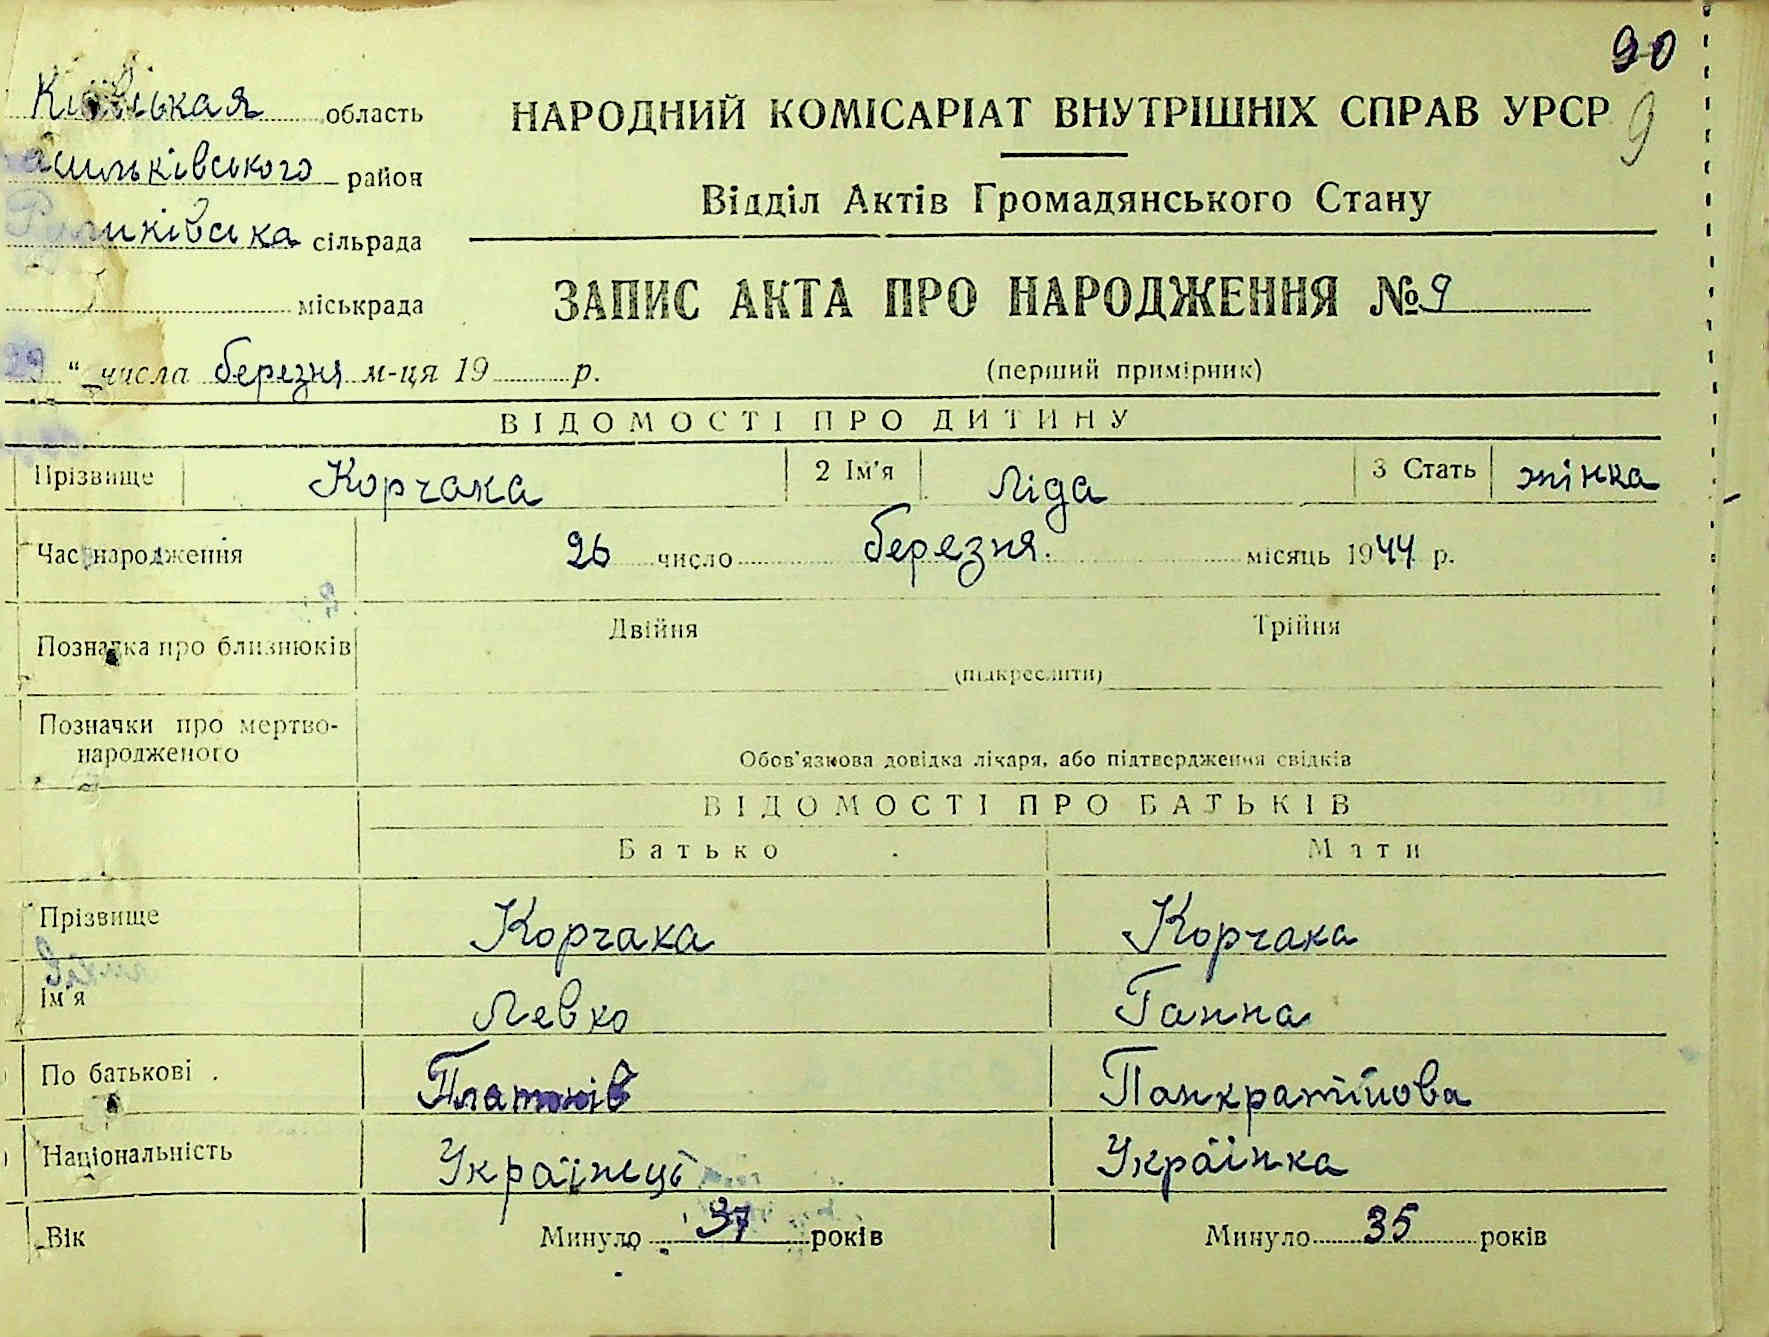 90
Київськая область
НАРОДНИЙ КОМІСАРІАТ ВНУТРІШНІХ СПРАВ УРСР 9
асильківського район
Відділ Актів Громадянського Стану
сільрада
міськрада
ЗАПИС АКТА ПРО НАРОДЖЕННЯ № 9
29 " числа березня м-ця 19 р.
(перший примірник)
ВІДОМОСТІ ПРО ДИТИНУ
Прізвище Корчака 2 Ім'я Ліда 3 Стать жінка
Час народження 26 число березня місяць 1944 р.
Позначка про близнюків Двійня Трійня
(підкреслити)
Позначки про мертво-
народженого
Обов'язкова довідка лікаря, або підтвердження свідків
ВІДОМОСТІ ПРО БАТЬКІВ
Батько Мати
Прізвище Корчака Корчака
Ім'я Левко Ганна
По батькові Платонів Панкратійова
Національність Українець Українка
Вік Минуло 37 років Минуло 35 років